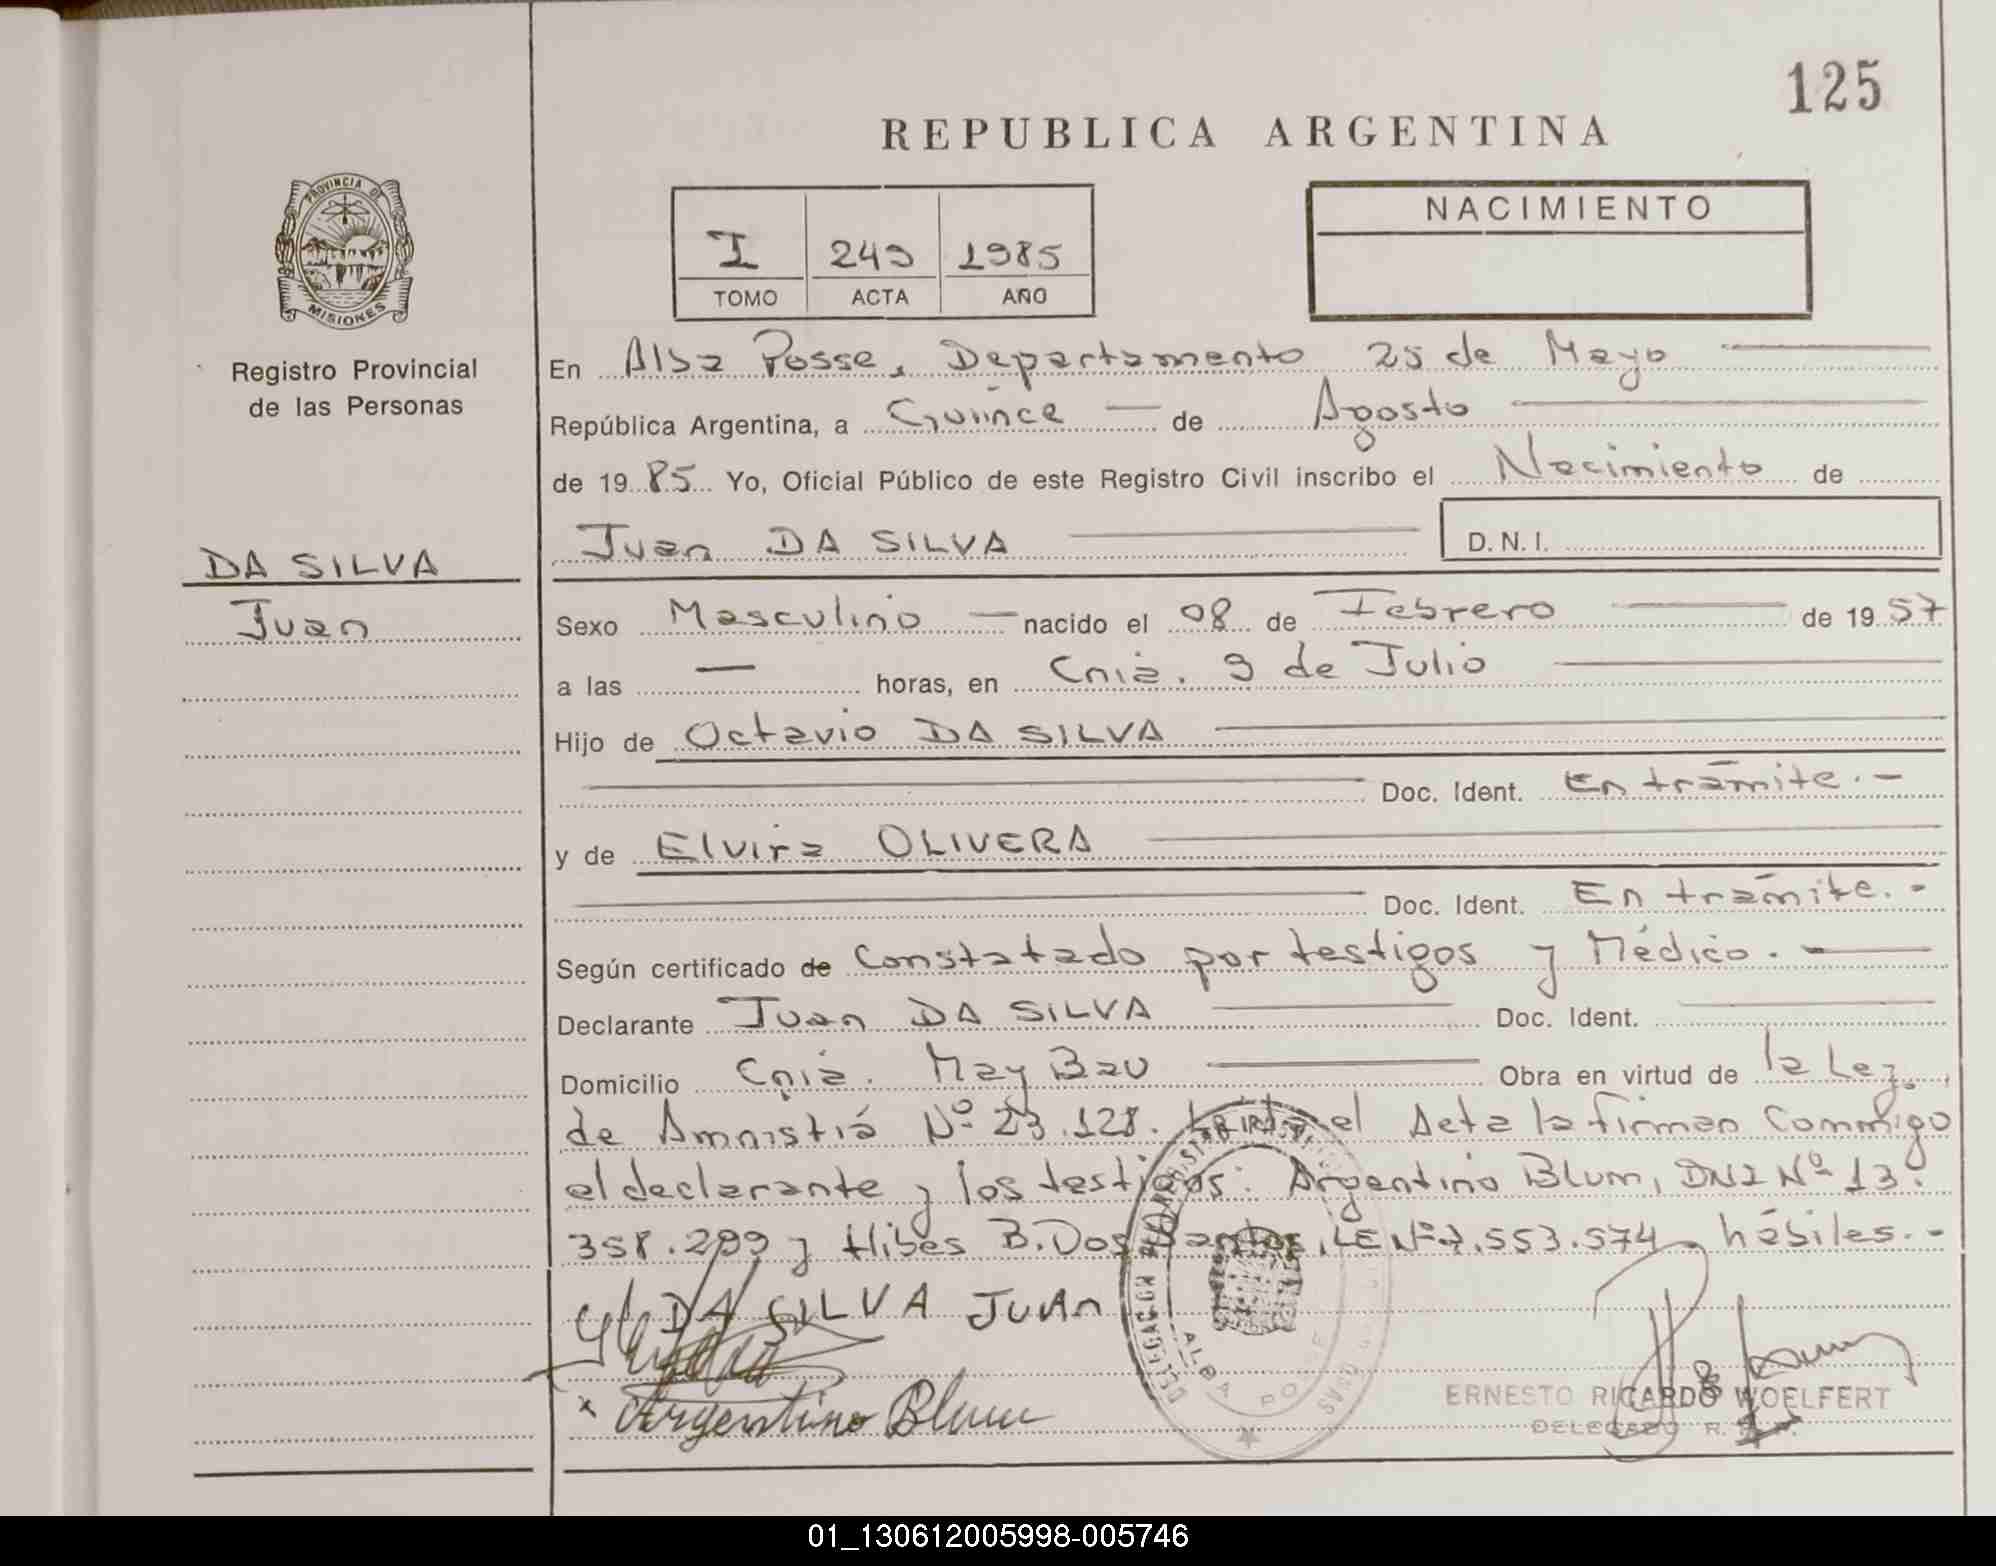 125
REPUBLICA ARGENTINA
PROVINCIA DE
MISIONES
Registro Provincial
de las Personas
NACIMIENTO
I 249 1985
TOMO ACTA AÑO
En Alba Posse, Departamento 25 de Mayo
República Argentina, a Quince de Agosto
de 1985 Yo, Oficial Público de este Registro Civil inscribo el Nacimiento de
Juan DA SILVA D.N.I.
DA SILVA
Juan
Sexo Masculino nacido el 08 de Febrero de 1957
a las — horas, en Cnia. 9 de Julio
Hijo de Octavio DA SILVA
Doc. Ident. En trámite.-
y de Elvira OLIVERA
Doc. Ident. En trámite.-
Según certificado de Constatado por testigos y Médico.
Declarante Juan DA SILVA Doc. Ident.
Domicilio Cnia. May Bau Obra en virtud de la Ley
de Amnistiá Nº 23.128. el Acta la firman Commigo
el declarante y los testigos: Argentino Blum, DNI Nº 13.
358.299 y Hibes B. Dos Santos, LE Nº 7.553.574, hábiles.-
DA SILVA JUAN
Argentino Blum
ALBA POSSE
ERNESTO RICARDO WOELFERT
DELEGADO R.
01_130612005998-005746